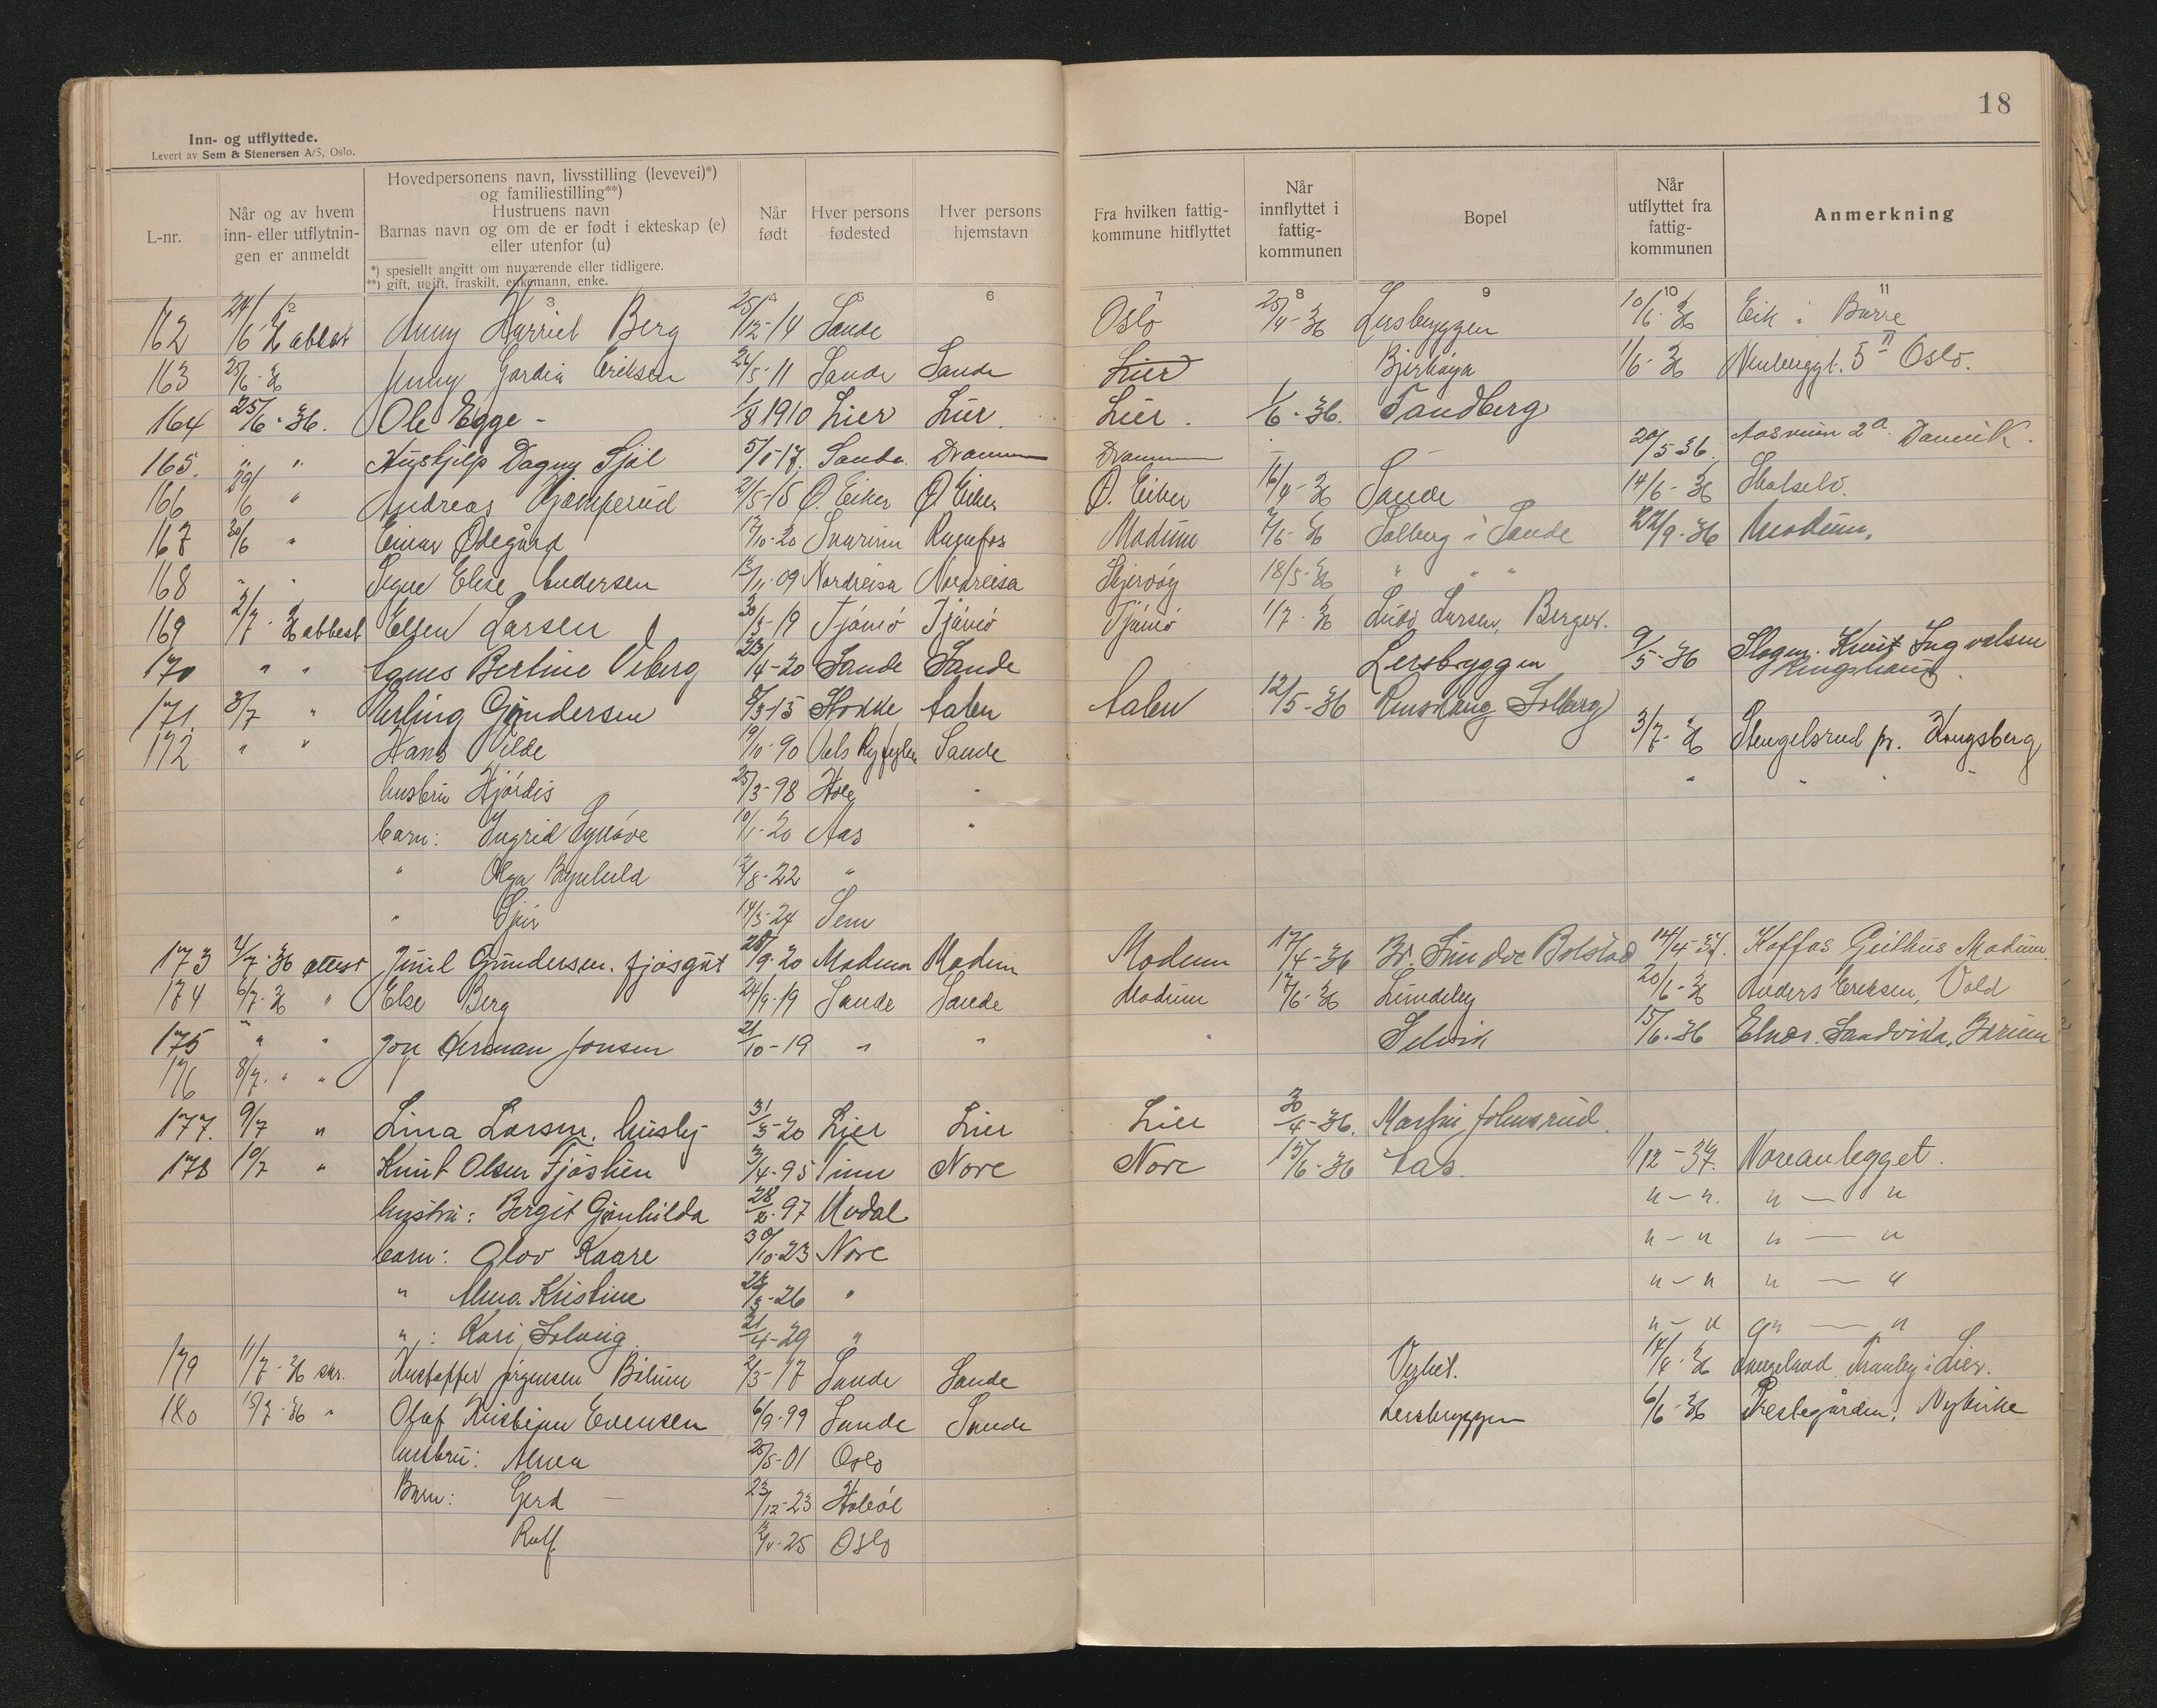 18
Inn- og utflyttede.
Levert av Sem & Stenersen A/S, Oslo.
L-nr.
Når og av hvem inn- eller utflytnin-gen er anmeldt
Hovedpersonens navn, livsstilling (levevei)*)
og familiestilling**)
Hustruens navn
Barnas navn og om de er født i ekteskap (e)
eller utenfor (u)
*) spesiellt angitt om nuværende eller tidligere.
**) gift, ugift, fraskilt, enkemann, enke.
Når født
Hver persons fødested
Hver persons hjemstavn
Fra hvilken fattig-kommune hitflyttet
Når innflyttet i fattig-kommunen
Bopel
Når utflyttet fra fattig-kommunen
Anmerkning
2 3 6 7 8 9 10 11
162 Anny Harriet Berg 25/12-14 Sande Oslo 25/4-36 Lersbryggen 10/6-36 Eik i Borre
163 25/6-36 Jenny Gordia Eriksen 26/5-11 Sande Sande Lier 1/6-36 5 II Oslo.
164 25/6-36. Ole Egge - 1/8 1910 Lier Lier. Lier. 1/6-36. Sandberg
165. " " Hushjelp Dagny 5/1-17. Sande. Drammen Drammen 20/5 36. 2a
166 29/6 " Andreas Ø. Eiker Ø. Eiker Ø. Eiker 16/4-36 Sande 14/6-36 Skotselv.
167 30/6 " Einar Ødegård Modum Solberg i Sande 22/9-36 Modum.
168 " " Signe Elise Andersen 13/11-09 Nordreisa Nordreisa Skjervøy 18/5-36 " " "
169 2/7-36 attest Elsen Larsen Tjømø Tjømø Tjømø 1/7-36 Ludv Larsen, Berger.
170 " " Agnes Bertine Viberg 23/4-20 Sande Sande Lersbryggen 9/5-36 Slagen. Knut Ingvalsen
Ringshaug.
171. 3/7 " Erling Gundersen Aalen Aalen 12/5-36 Solberg
172 " " Hans Vilde 19/10-90 Sande 3/7-36 Stengelsrud pr. Kongsberg
hustru Hjørdis 25/3-98 Hole " " " " "
barn: Ingrid Synnøve 10/1-20 Aas "
" Olga Brynhild 12/8-22 "
" 14/5-24 Sem
173 4/7-36 attest Gundersen. fjøsgut 28/9-20 Modum Modum Modum 17/4-36 14/4-37. Koffas Geithus Modum.
174 6/7-36 " Else Berg 24/9-19 Sande Sande Modum 17/6-36 Lundeby 20/6-36 Anders Eriksen, Vold
175 " " Herman Jonsen 21/10-19 " " Selvik 15/6-36 Sandvika, Bærum
176 8/7. " "
177. 9/7 " Lina Larsen, hushj 31/3-20 Lier Lier Lier 30/4-36. Martin Johnsrud.
178 10/7 " Knut Olsen 3/4-95 Tinn Nore Nore 15/6-36 Aas. 1/12-37. Noreanlegget.
hustru: Bergit Gunhilda 97 " - " " — "
barn: Olov Kaare 30/10-23 Nore " - " " — "
" Alma Kristine 26 " " - " " — "
" : Kari Solveig 21/4-29 " " - " " — "
179 11/7-36 Kristoffer Jørgensen 2/3-17 Sande Sande 14/8-36 Tranby i Lier.
180 Olaf Kristian Evensen 6/9-99 Sande Sande Lersbryggen 6/6-36 Prestegården, Nykirke
hustru: Alma 25/5-01 Oslo
Barn: Gerd — 23/12-23 Hobøl
Rolf 25 Oslo